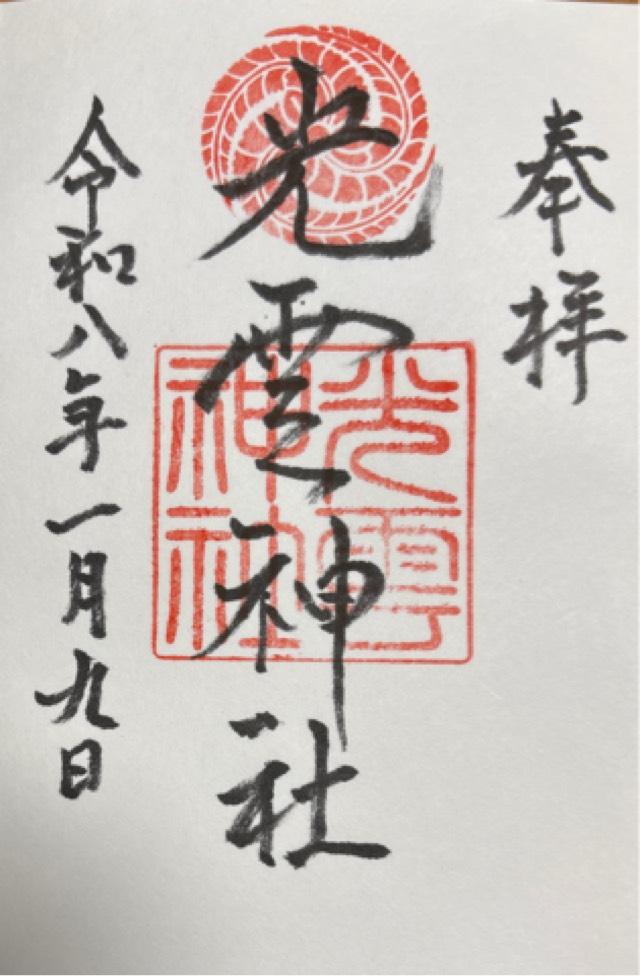 奉拝
光雲神社
光雲
神社
令和八年一月九日